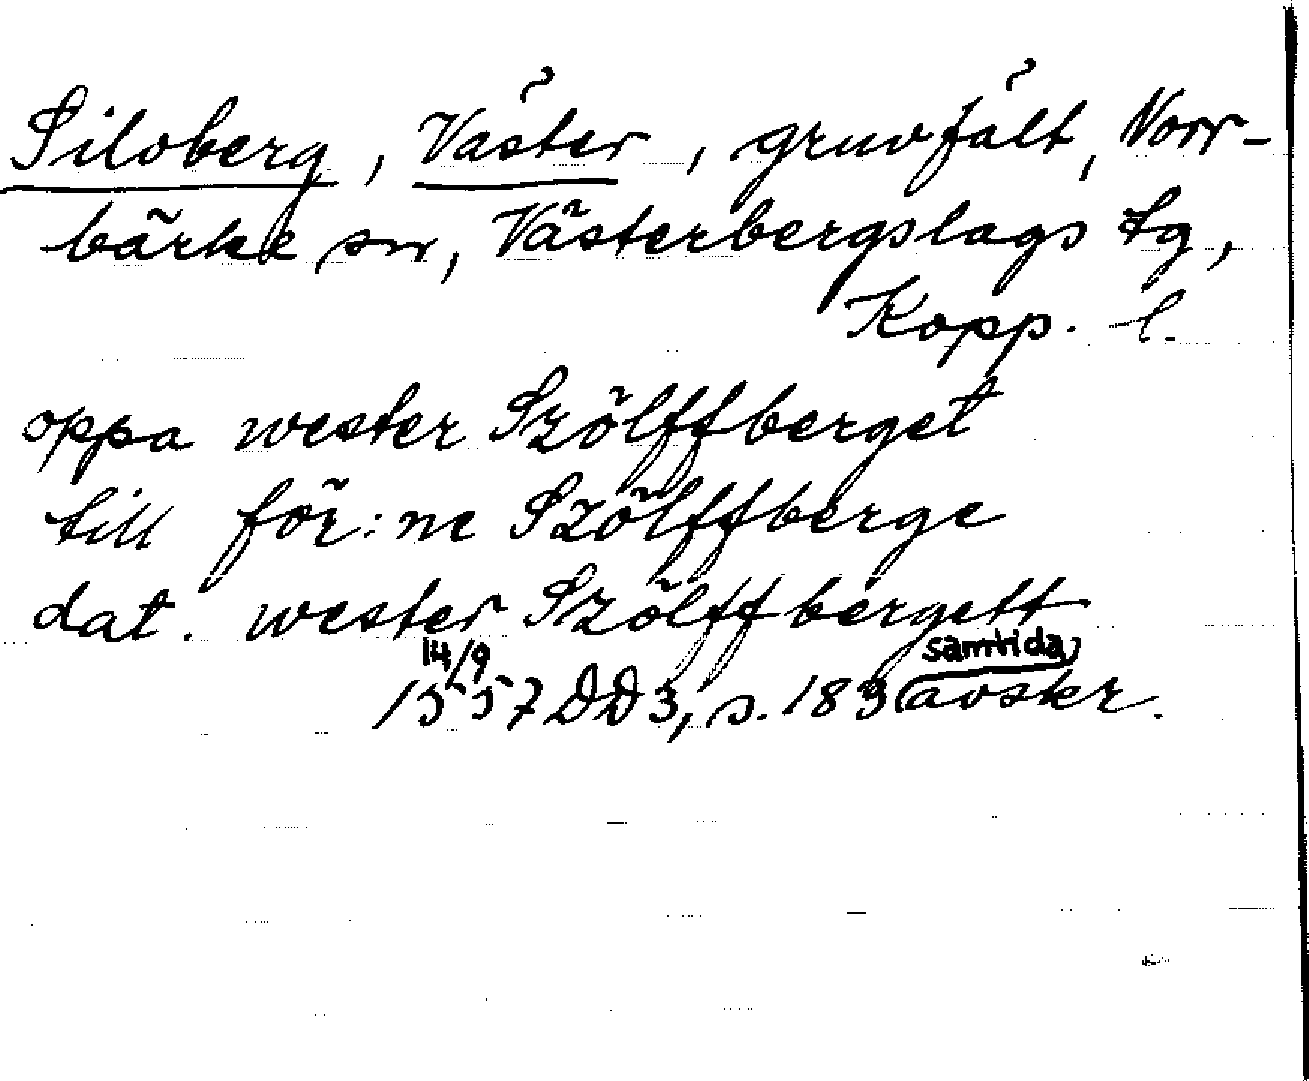 Silvberg, Väster, gruvfält, Norr-
bärke sn, Västerbergslags tg,
Kopp. l.
oppa wester Szölffberget
till för:ne Szölffberge
dat. wester Szölffbergett
14/9 1557 DD 3, s. 183 (samtida) avskr.